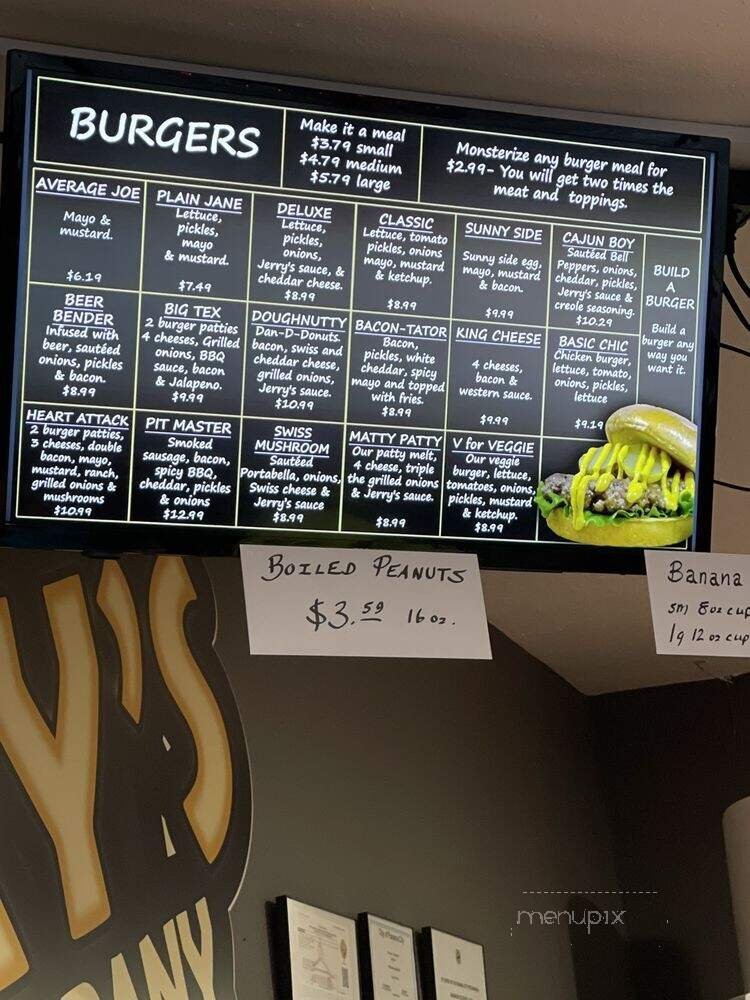 BURGERS
Make it a meal
$3.79 small
$4.79 medium
$5.79 large
Monsterize any burger meal for
$2.99- You will get two times the
meat and toppings.
AVERAGE JOE
Mayo &
mustard.
$6.19
PLAIN JANE
Lettuce,
pickles,
mayo
& mustard.
$7.49
DELUXE
Lettuce,
pickles,
onions,
Jerry's sauce, &
cheddar cheese.
$8.99
CLASSIC
Lettuce, tomato
pickles, onions
mayo, mustard
& ketchup.
$8.99
SUNNY SIDE
Sunny side egg,
mayo, mustard
& bacon.
$9.99
CAJUN BOY
Sautéed Bell
Peppers, onions,
cheddar, pickles,
Jerry's sauce &
creole seasoning.
$10.29
BUILD
A
BURGER
Build a
burger any
way you
want it.
BEER
BENDER
Infused with
beer, sautéed
onions, pickles
& bacon.
$8.99
BIG TEX
2 burger patties
4 cheeses, Grilled
onions, BBQ
sauce, bacon
& Jalapeno.
$9.99
DOUGHNUTTY
Dan-D-Donuts.
bacon, swiss and
cheddar cheese,
grilled onions,
Jerry's sauce.
$10.99
BACON-TATOR
Bacon,
pickles, white
cheddar, spicy
mayo and topped
with fries.
$8.99
KING CHEESE
4 cheeses,
bacon &
western sauce.
$9.99
BASIC CHIC
Chicken burger,
lettuce, tomato,
onions, pickles,
lettuce
$9.19
HEART ATTACK
2 burger patties,
3 cheeses, double
bacon, mayo,
mustard, ranch,
grilled onions &
mushrooms
$10.99
PIT MASTER
Smoked
sausage, bacon,
spicy BBQ,
cheddar, pickles
& onions
$12.99
SWISS
MUSHROOM
Sautéed
Portabella, onions,
Swiss cheese &
Jerry's sauce
$8.99
MATTY PATTY
Our patty melt,
4 cheese, triple
the grilled onions
& Jerry's sauce.
$8.99
V for VEGGIE
Our veggie
burger, lettuce,
tomatoes, onions,
pickles, mustard
& ketchup.
$8.99
BOILED PEANUTS
$3.59 16 oz.
Banana
sm 8oz cup
lg 12 oz cup
Y'S
PANY
menupix